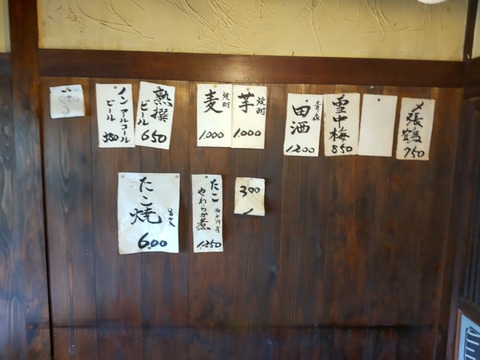 〆張鶴
750
雪中梅
850
青森
田酒
1200
焼酎
芋
1000
焼酎
麦
1000
熟撰
ビール
650
ノンアルコール
ビール
350
300
たこ
やわらか煮
1350
たこ焼
600